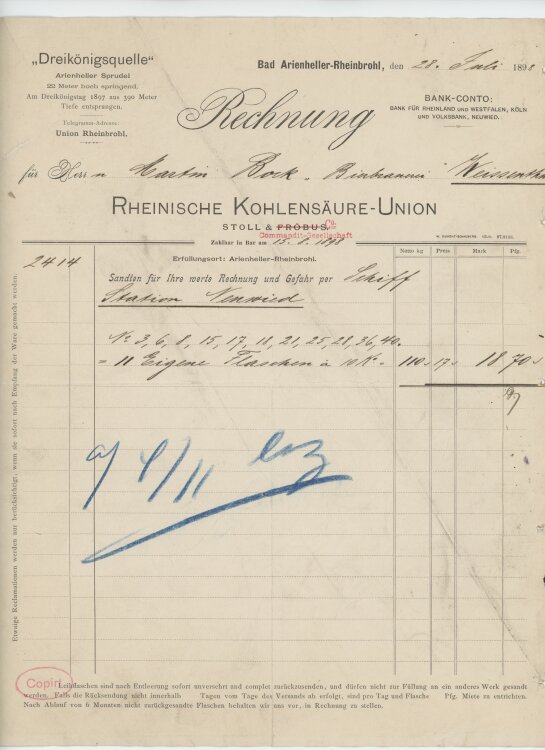 „Dreikönigsquelle“
Arienheller Sprudel
22 Meter hoch springend.
Am Dreikönigstag 1897 aus 390 Meter
Tiefe entsprungen.
Telegramm-Adresse:
Union Rheinbrohl.
Bad Arienheller-Rheinbrohl, den 28. Juli 1898
BANK-CONTO:
BANK FÜR RHEINLAND UND WESTFALEN, KÖLN
UND VOLKSBANK, NEUWIED.
Rechnung
für Herrn Martin Bock, Weissenth
RHEINISCHE KOHLENSÄURE-UNION
STOLL & FRÖBUS. Co.
Commandit-Gesellschaft
Zahlbar in Bar am 15. 8. 1898
Netto kg Preis Mark Pfg.
2414 Erfüllungsort: Arienheller-Rheinbrohl.
Sandten für Ihre werte Rechnung und Gefahr per Schiff
Station Neuwied
No 3, 6, 8, 15, 17, 18, 21, 25, 28, 36, 40.
= 11 Eigene Flaschen à 10 K. = 110.- 17.- 18 70
a/ 4/11
Etwaige Reclamationen werden nur berücksichtigt, wenn sie sofort nach Empfang der Ware gemacht werden.
Copirt
Leihflaschen sind nach Entleerung sofort unversehrt und complet zurückzusenden, und dürfen nicht zur Füllung an ein anderes Werk gesandt
werden. Falls die Rücksendung nicht innerhalb Tagen vom Tage des Versands ab erfolgt, sind pro Tag und Flasche Pfg. Miete zu entrichten.
Nach Ablauf von 6 Monaten nicht zurückgesandte Flaschen behalten wir uns vor, in Rechnung zu stellen.